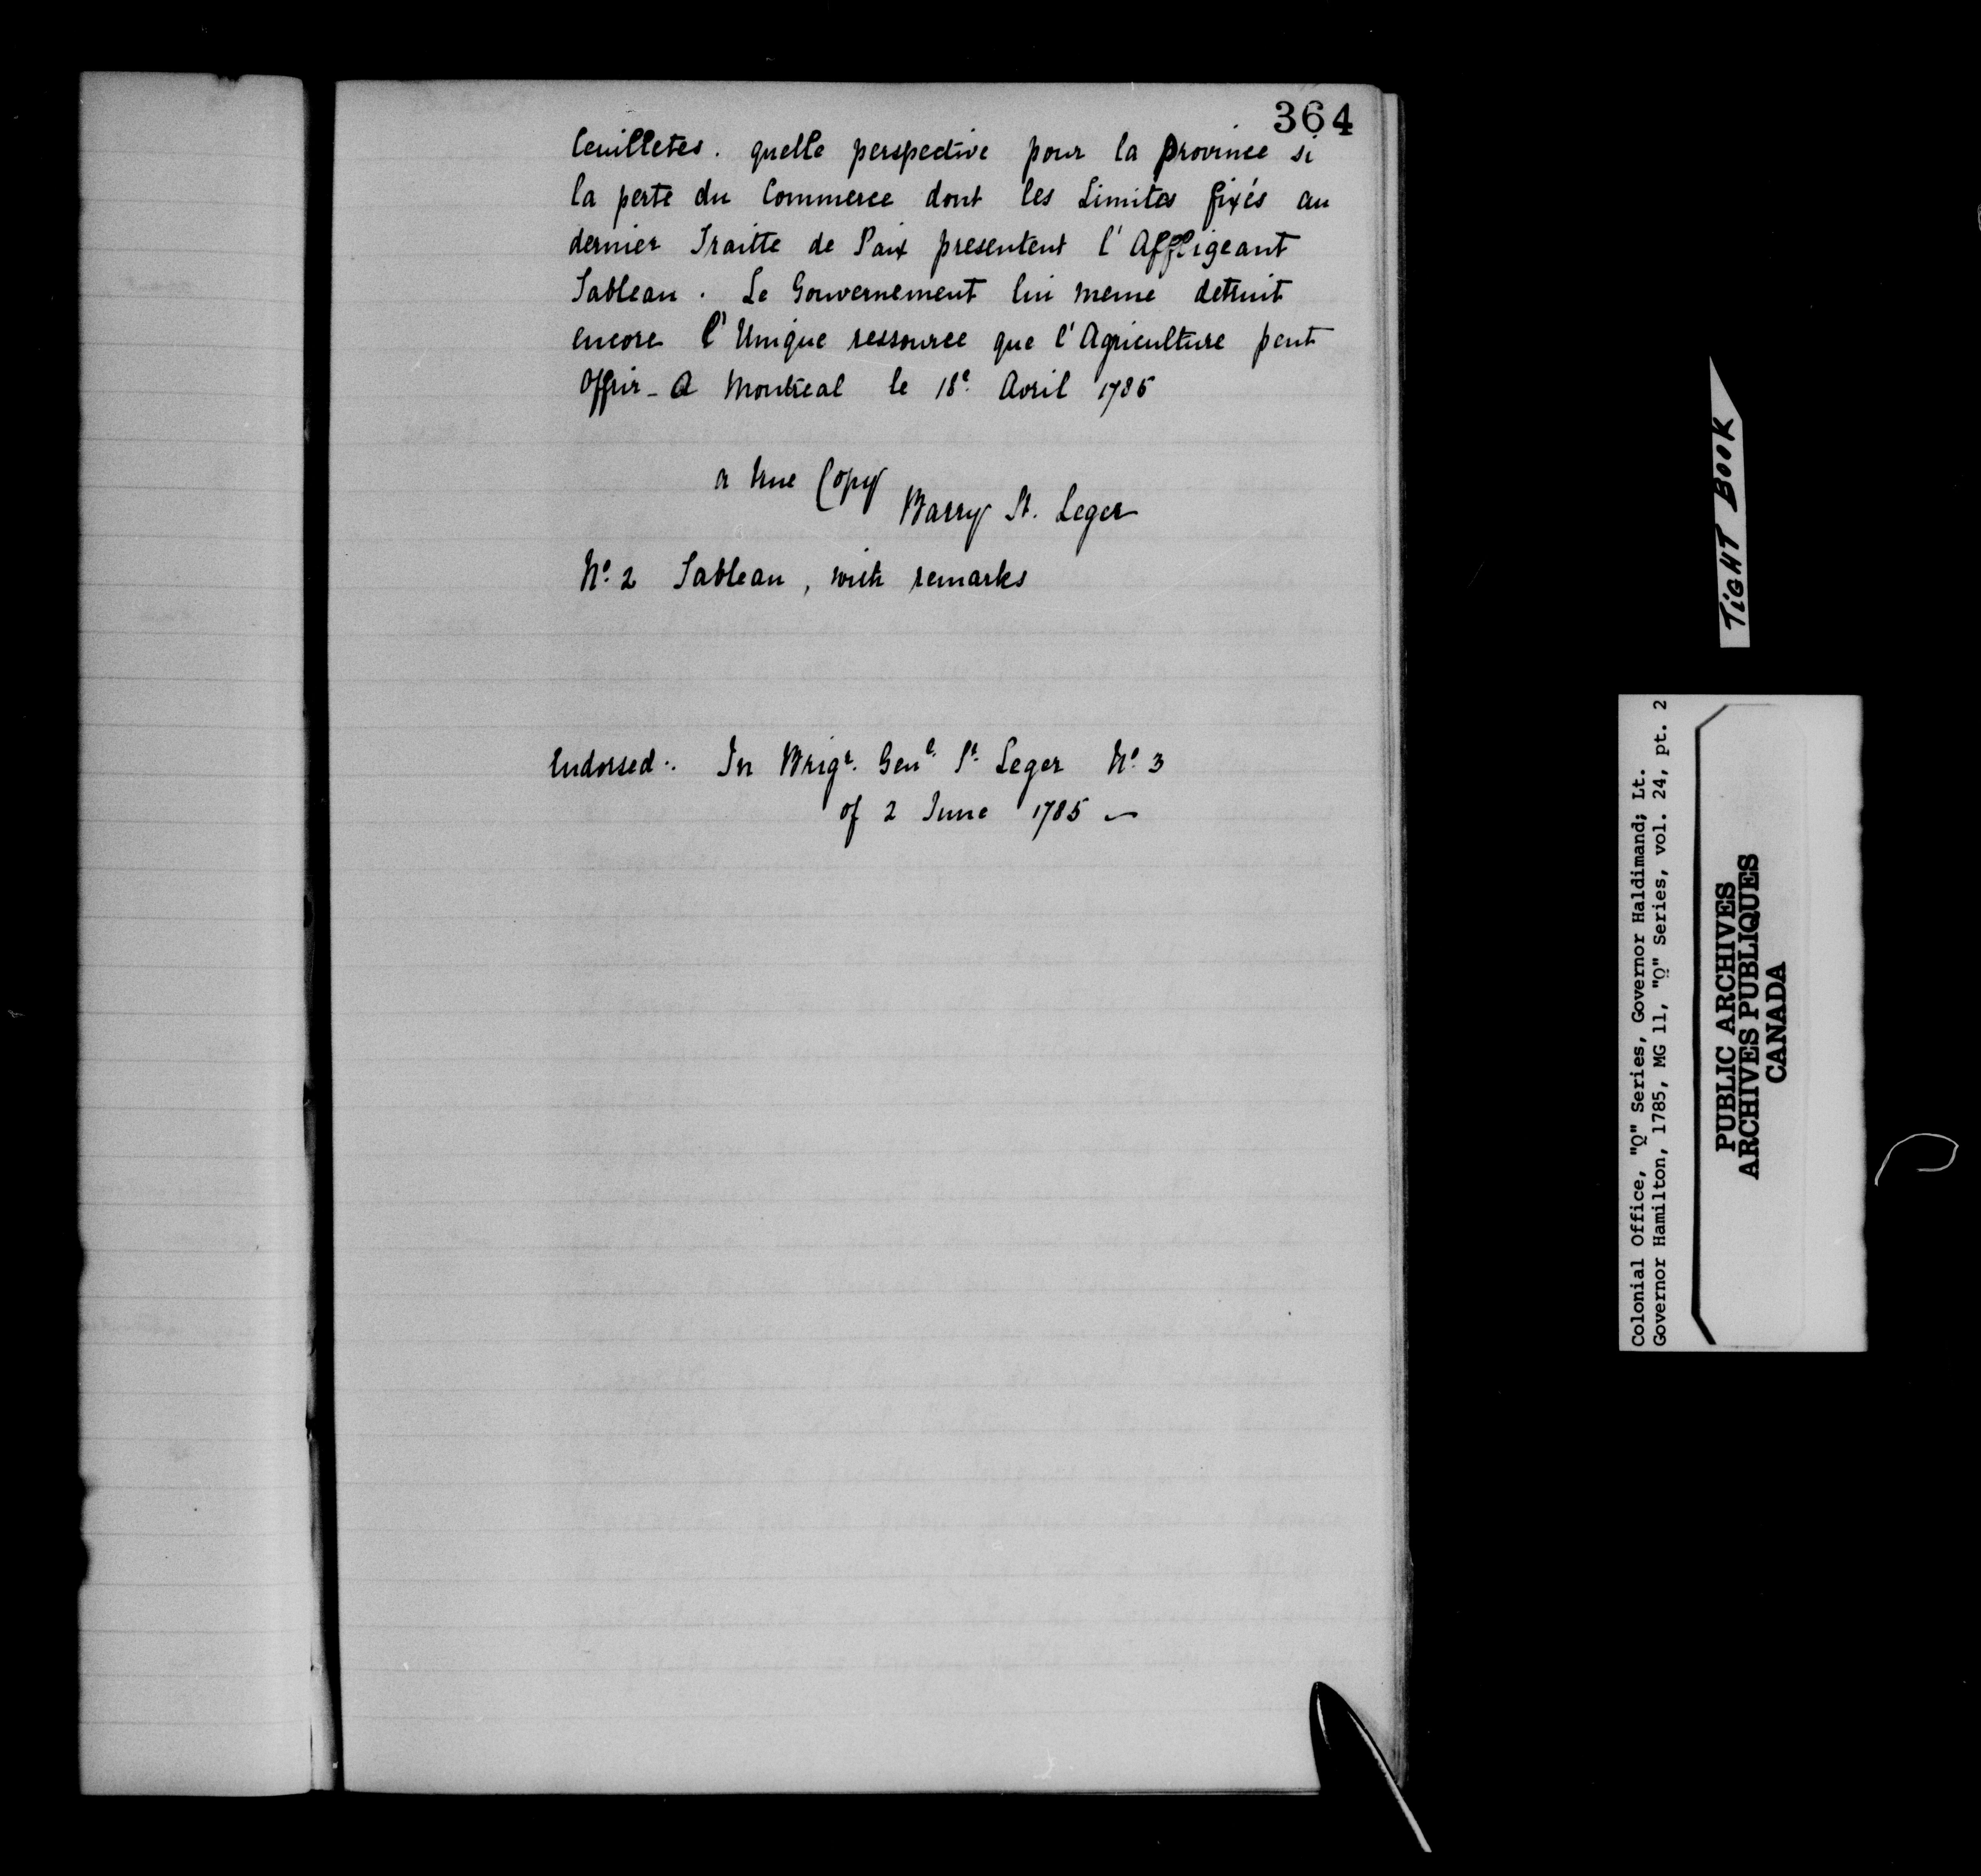 364
Ceuilletes. quelle perspective pour la province si
la perte du Commerce dont les Limites fixés au
dernier Traitte de Paix presentent l'Affligeant
Tableau. Le Gouvernement lui meme detruit
encore l'Unique ressource que l'Agriculture peut
Offrir_ A Montreal le 18e Avril 1785
a true Copy
Barry St. Leger
No. 2 Tableau, with remarks
Endorsed:. In Brigr. Genl. St. Leger No. 3
of 2 June 1785 ~
TIGHT BOOK
Colonial Office, "Q" Series, Governor Haldimand; Lt.
Governor Hamilton, 1785, MG 11, "Q" Series, vol. 24, pt. 2
PUBLIC ARCHIVES
ARCHIVES PUBLIQUES
CANADA